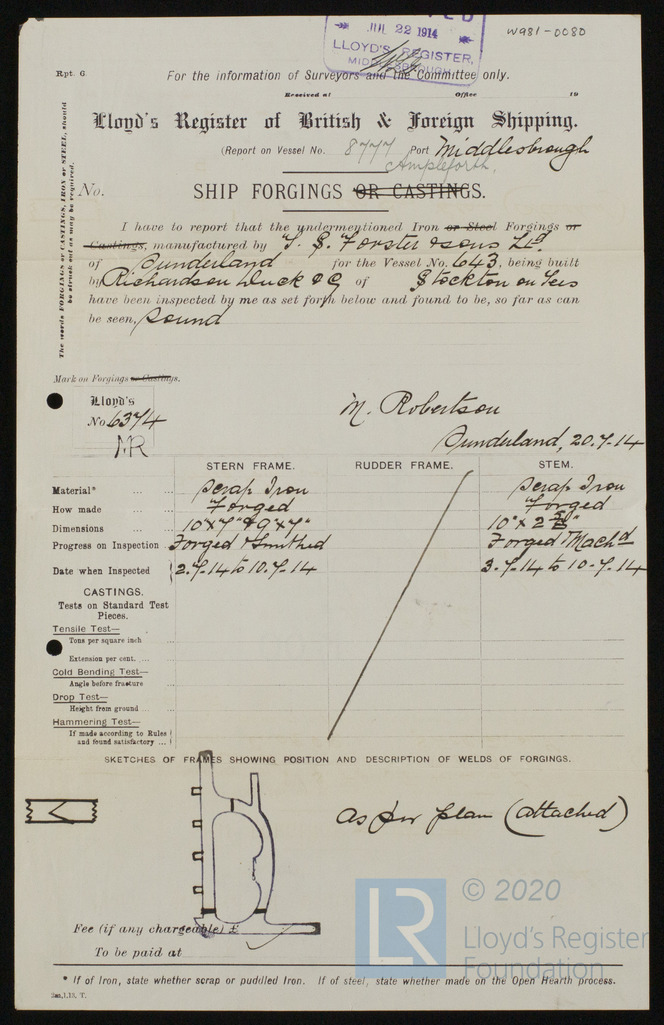 JUL 22 1914
LLOYD'S REGISTER,
W981-0080
Rpt. 6
For the information of Surveyors and the Committee only.
Received at Office 19
Lloyd's Register of British & Foreign Shipping.
(Report on Vessel No. 8777 Port Middlesbrough
Ampleforth,
The words FORGINGS or CASTINGS, IRON or STEEL, should
be struck out as may be required.
No. SHIP FORGINGS OR CASTINGS.
I have to report that the undermentioned Iron or Steel Forgings or
Castings, manufactured by T. S. Forster & Sons Ltd.
of Sunderland for the Vessel No. 643, being built
by Richardson Duck & Co of Stockton on Tees
have been inspected by me as set forth below and found to be, so far as can
be seen, sound
Mark on Forgings or Castings.
Lloyd's
No 6374
MR
M. Robertson
Sunderland, 20.7.14
STERN FRAME. RUDDER FRAME. STEM.
Material* ... ... Scrap Iron Scrap Iron
How made ... ... Forged Forged
Dimensions ... ... 10"x7" & 9"x7" 10" x 2
Progress on Inspection Forged & Smithed Forged & Mach'd
Date when Inspected 2.7.14 to 10.7.14 3.7.14 to 10.7.14
CASTINGS.
Tests on Standard Test
Pieces.
Tensile Test—
Tons per square inch
Extension per cent. ...
Cold Bending Test—
Angle before fracture
Drop Test—
Height from ground ...
Hammering Test—
If made according to Rules
and found satisfactory ...
SKETCHES OF FRAMES SHOWING POSITION AND DESCRIPTION OF WELDS OF FORGINGS.
As per plan (attached)
Fee (if any chargeable) £
To be paid at
LR
© 2020
Lloyd's Register
Foundation
* If of Iron, state whether scrap or puddled Iron. If of steel, state whether made on the Open Hearth process.